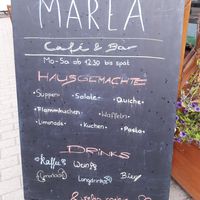 MARLA
Café & Bar
Mo-Sa ab 12:30 bis spät
HAUSGEMACHTE
• Suppen • Salate • Quiche
• Flammkuchen • Waffeln
• Limonade • Kuchen • Pasta
DRINKS
Kaffee Wein
Limonade Longdrinks Bier